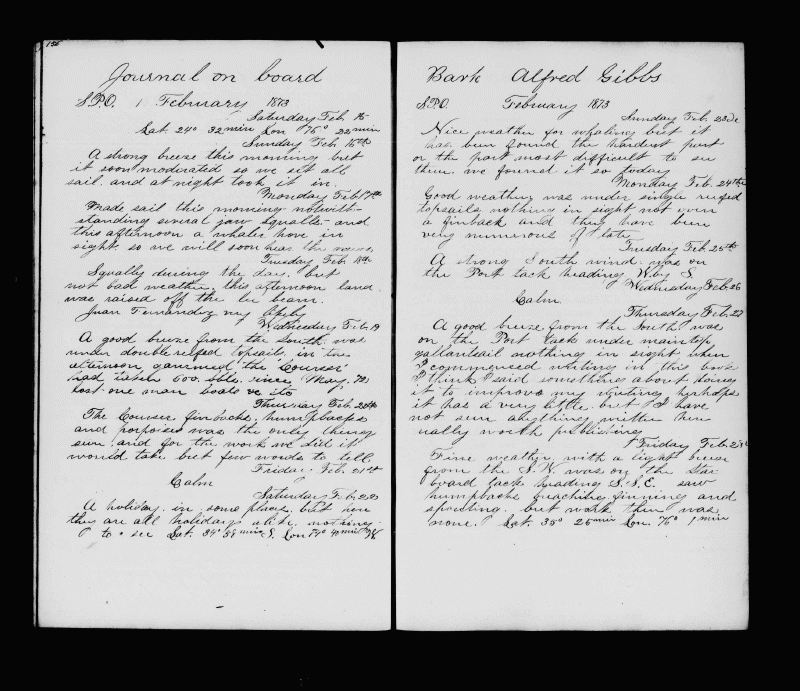 156
Journal on board
S.P.O. February 1873
Saturday Feb. 15
Lat. 24° 32 min Lon 76° 22 min
Sunday Feb. 16th
A strong breeze this morning but
it soon moderated so we set all
sail and at night took it in.
Monday Feb 17th
Made sail this morning notwith-
standing several jaw squalls and
this afternoon a whaler hove in
sight so we will soon hear the news
Tuesday Feb. 18th
Squally during the day but
not bad weather. this afternoon land
was raised off the lee beam.
Juan Fernandez
Wednesday Feb. 19
A good breeze from the South was
under double reefed topsails in the
afternoon gammed the Courser
had taken 500 bbls. since May. 72
lost one man boats &c
Thursday Feb. 20th
The Courser finbacks, humpbacks
and porpoises was the only things
seen, and for the work we did it
would take but few words to tell.
Friday. Feb. 21st
Calm
Saturday Feb. 22
A holiday in some places but here
they are all holidays alike. nothing
to see Lat. 34° 59 min S. Lon 74° 40 min W
Bark Alfred Gibbs
S.P.O February 1873
Sunday Feb. 23d
Nice weather for whaling but it
has been found the hardest part
or the part most difficult to see
them we found it so today
Monday Feb. 24th
Good weather was under single reefed
topsails nothing in sight not even
a finback and they have been
very numerous of late
Tuesday Feb 25th
A strong South wind. was on
the Port tack heading W. by S.
Wednesday Feb. 26
Calm
Thursday Feb. 27
A good breeze from the South was
on the Port tack under maintop
gallantsail nothing in sight when
I commenced writing in this book
I think I said something about doing
it to improve my writing perhaps
it has a very little but I have
not seen anything written here
really worth publishing
Friday Feb. 28
Fine weather with a light breeze
from the S.W. was on the star
board tack heading S.S.E. saw
humpbacks breaching finning and
spouting. but work there was
none. Lat. 35° 25 min Lon. 76° 1 min